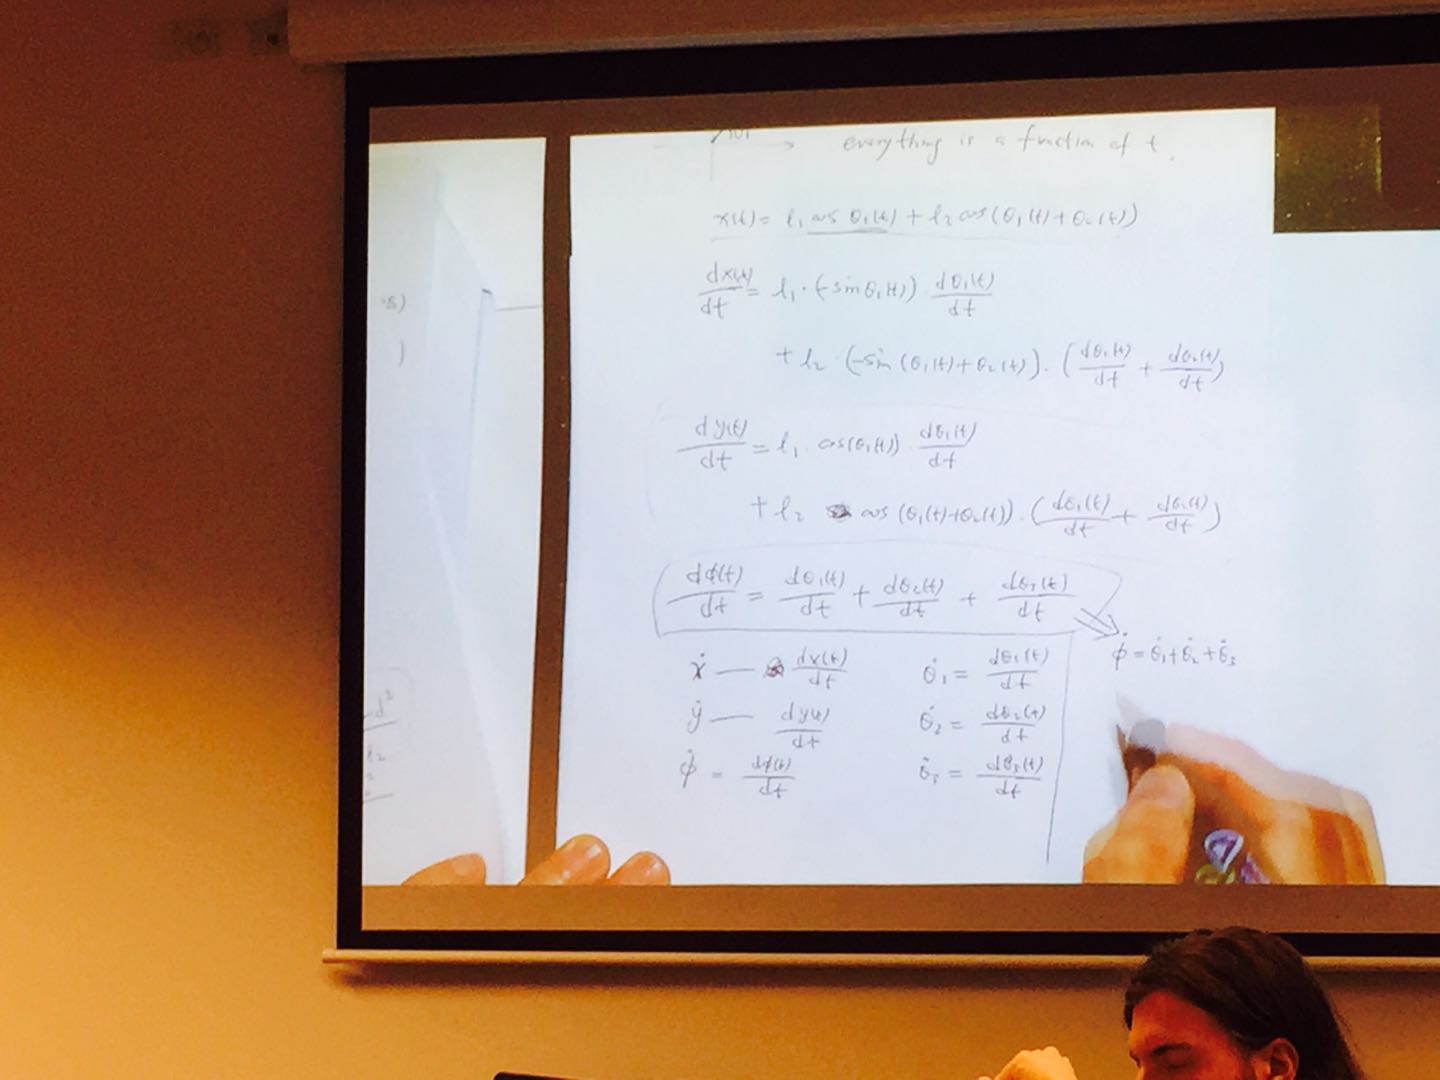 everything is a function of t.
x(t) = l₁ cos θ₁(t) + l₂ cos(θ₁(t)+θ₂(t))
dx(t)/dt = l₁·(-sin θ₁(t))·dθ₁(t)/dt
+ l₂·(-sin(θ₁(t)+θ₂(t))·(dθ₁(t)/dt + dθ₂(t)/dt)
dy(t)/dt = l₁·cos(θ₁(t))·dθ₁(t)/dt
+ l₂ cos(θ₁(t)+θ₂(t))·(dθ₁(t)/dt + dθ₂(t)/dt)
dϕ(t)/dt = dθ₁(t)/dt + dθ₂(t)/dt + dθ₃(t)/dt
ϕ̇ = θ̇₁+θ̇₂+θ̇₃
ẋ — dx(t)/dt θ̇₁ = dθ₁(t)/dt
ẏ — dy(t)/dt θ̇₂ = dθ₂(t)/dt
ϕ̇ = dϕ(t)/dt θ̇₃ = dθ₃(t)/dt